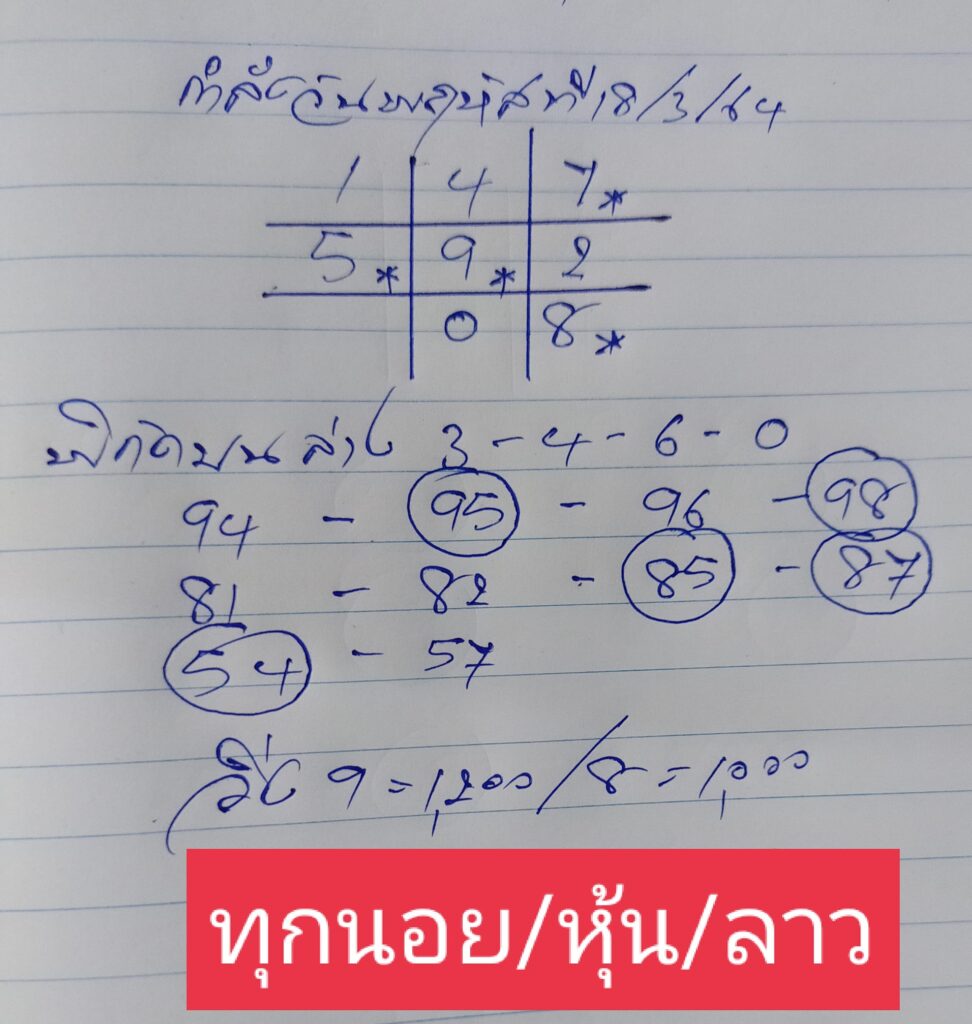 กำลังวันพฤหัสที่ 18/3/64
1 4 7*
5* 9* 2
0 8*
พิกัดบนล่าง 3-4-6-0
94 - 95 - 96 - 98
81 - 82 - 85 - 87
54 - 57
วิ่ง 9 = 1,200 / 8 = 1,000
ทุกนอย/หุ้น/ลาว